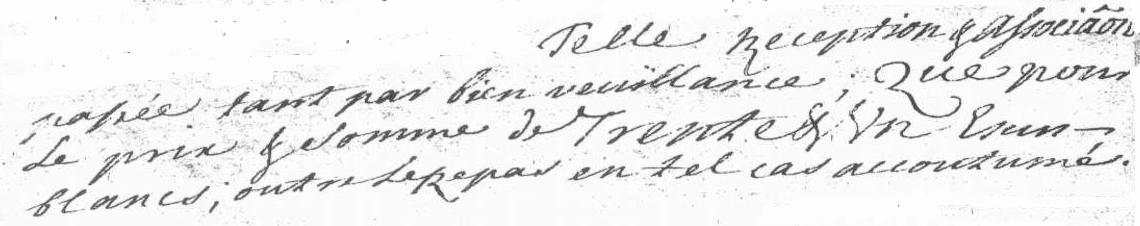 Telle Reception & Associaõn
passée tant par bien veüillance; Que pour
Le prix & Somme de Trente & Un Escus
blancs; outre Le Repas en tel cas accoutumé.